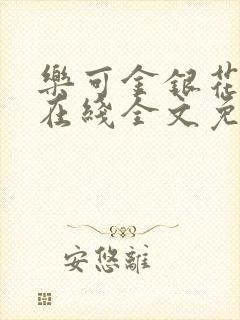 樂可金銀花
在綫全文免
安悠離